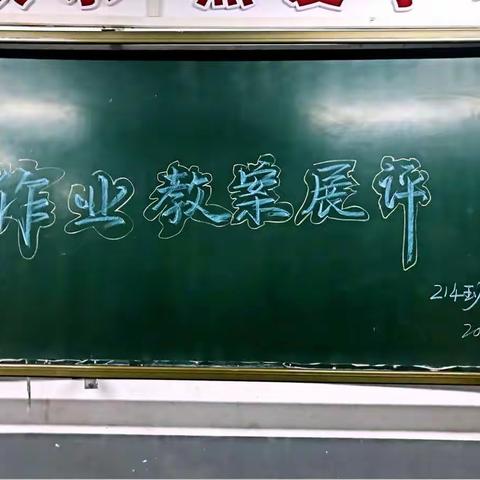 作业教案展评
214班
20